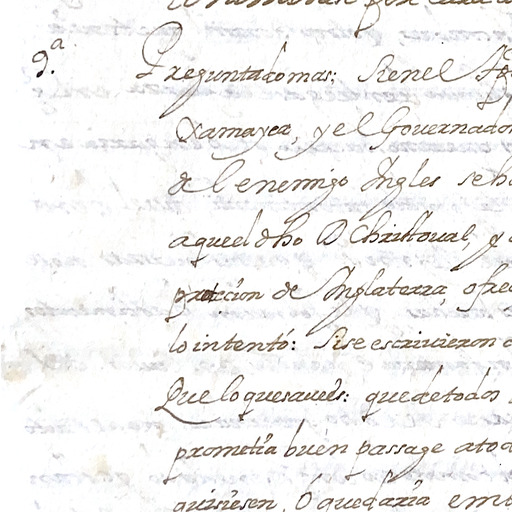 9.ª Preguntado mas: Si en el
Xamayca, y el Governador
del enemigo Ingles se h
aqueel dho D Christoval, y
de Inglaterra, ofre
lo intentó: Si se escrivieron
Que lo quesavees: quedetodos
prometia buen passage atod
quisiesen, O quedaria em